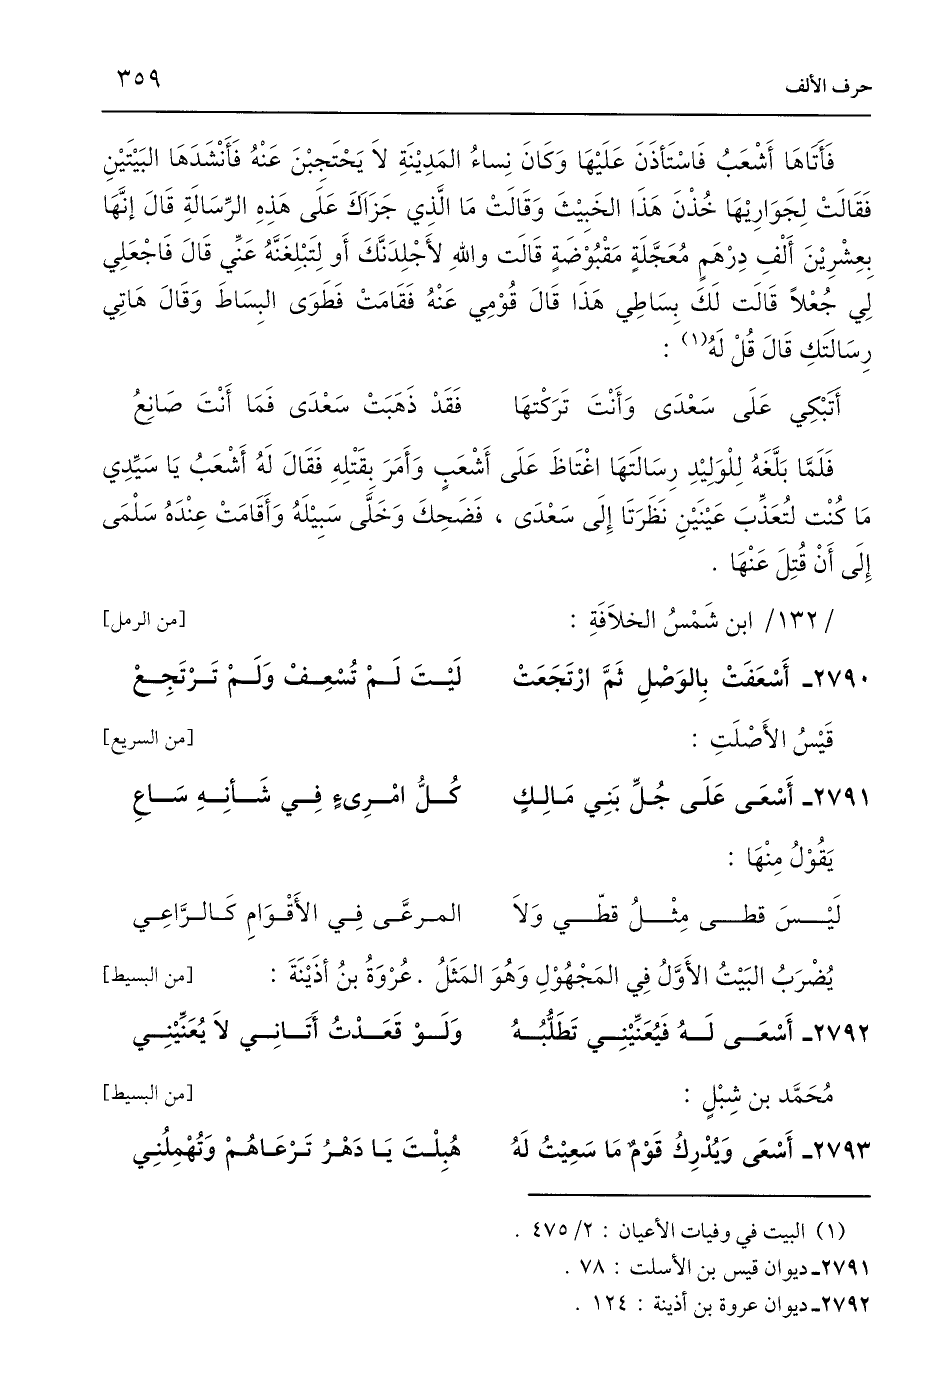 حرف الألف ٣٥٩
فَأَتَاهَا أَشْعَبُ فَاسْتَأْذَنَ عَلَيْهَا وَكَانَ نِساءُ المَدِيْنَةِ لاَ يَحْتَجِبْنَ عَنْهُ فَأَنْشَدَهَا البَيْتَيْنِ
فَقَالَتْ لِجَوَارِيْهَا خُذْنَ هَذَا الخَبِيْثَ وَقَالَتْ مَا الَّذِي جَزَاكَ عَلَى هَذِهِ الرِّسَالَةِ قَالَ إنَّهَا
بِعِشْرِيْنَ أَلْفِ دِرْهَمٍ مُعَجَّلَةٍ مَقْبُوْضَةٍ قَالَت واللهِ لأَجْلِدَنَّكَ أَو لِتَبْلِغَنَّهُ عَنِّي قَالَ فَاجْعَلِي
لِي جُعْلاً قَالَت لَكَ بِسَاطِي هَذَا قَالَ قُوْمِي عَنْهُ فَقَامَتْ فَطَوَى البِسَاطَ وَقَالَ هَاتِي
رِسَالَتَكِ قَالَ قُلْ لَهُ(١) :
أَتَبْكِي عَلَى سَعْدَى وَأَنْتَ تَرَكْتهَا فَقَدْ ذَهَبَتْ سَعْدَى فَمَا أَنْتَ صَانِعُ
فَلَمَّا بَلَّغَهُ لِلْوَلِيْدِ رِسَالَتَهَا اغْتَاظَ عَلَى أَشْعَبٍ وَأَمَرَ بِقَتْلِهِ فَقَالَ لَهُ أَشْعَبُ يَا سَيِّدِي
مَا كُنْت لتُعَذِّبَ عَيْنَيْنِ نَظَرَتَا إِلَى سَعْدَى ، فَضَحِكَ وَخَلَّى سَبِيْلَهُ وَأَقَامَتْ عِنْدَهُ سَلْمَى
إِلَى أَنْ قُتِلَ عَنْهَا .
/١٣٢/ ابن شَمْسُ الخلاَفَةِ : [من الرمل]
٢٧٩٠ـ أَسْعَفَتْ بِالوَصْلِ ثَمَّ ارْتَجَعَتْ لَيْتَ لَمْ تُسْعِفْ وَلَمْ تَرْتَجِعْ
قَيْسُ الأَصْلَتِ : [من السريع]
٢٧٩١ـ أَسْعَى عَلَى جُلِّ بَنِي مَالِكٍ كُلُّ امْرِىءٍ فِي شَأنِهِ سَاعِ
يَقُوْلُ مِنْهَا :
لَيْسَ قطى مِثْلُ قطّي وَلاَ المرعَّى فِي الأَقْوَامِ كَالرَّاعِي
يُضْرَبُ البَيْتُ الأَوَّلُ فِي المَجْهُوْلِ وَهُوَ المَثَلُ . عُرْوَةُ بنُ أذَيْنَةَ : [من البسيط]
٢٧٩٢ـ أَسْعَى لَهُ فَيُعَنِّيْنِي تَطَلُّبُهُ وَلَوْ قَعَدْتُ أَتَانِي لاَ يُعَنِّيْنِي
مُحَمَّد بن شِبْلٍ : [من البسيط]
٢٧٩٣ـ أَسْعَى وَيُدْرِكُ قَوْمٌ مَا سَعِيْتُ لَهُ هُبِلْتَ يَا دَهْرُ تَرْعَاهُمْ وَتُهْمِلُنِي
(١) البيت في وفيات الأعيان : ٢/ ٤٧٥ .
٢٧٩١ـ ديوان قيس بن الأسلت : ٧٨ .
٢٧٩٢ـ ديوان عروة بن أذينة : ١٢٤ .